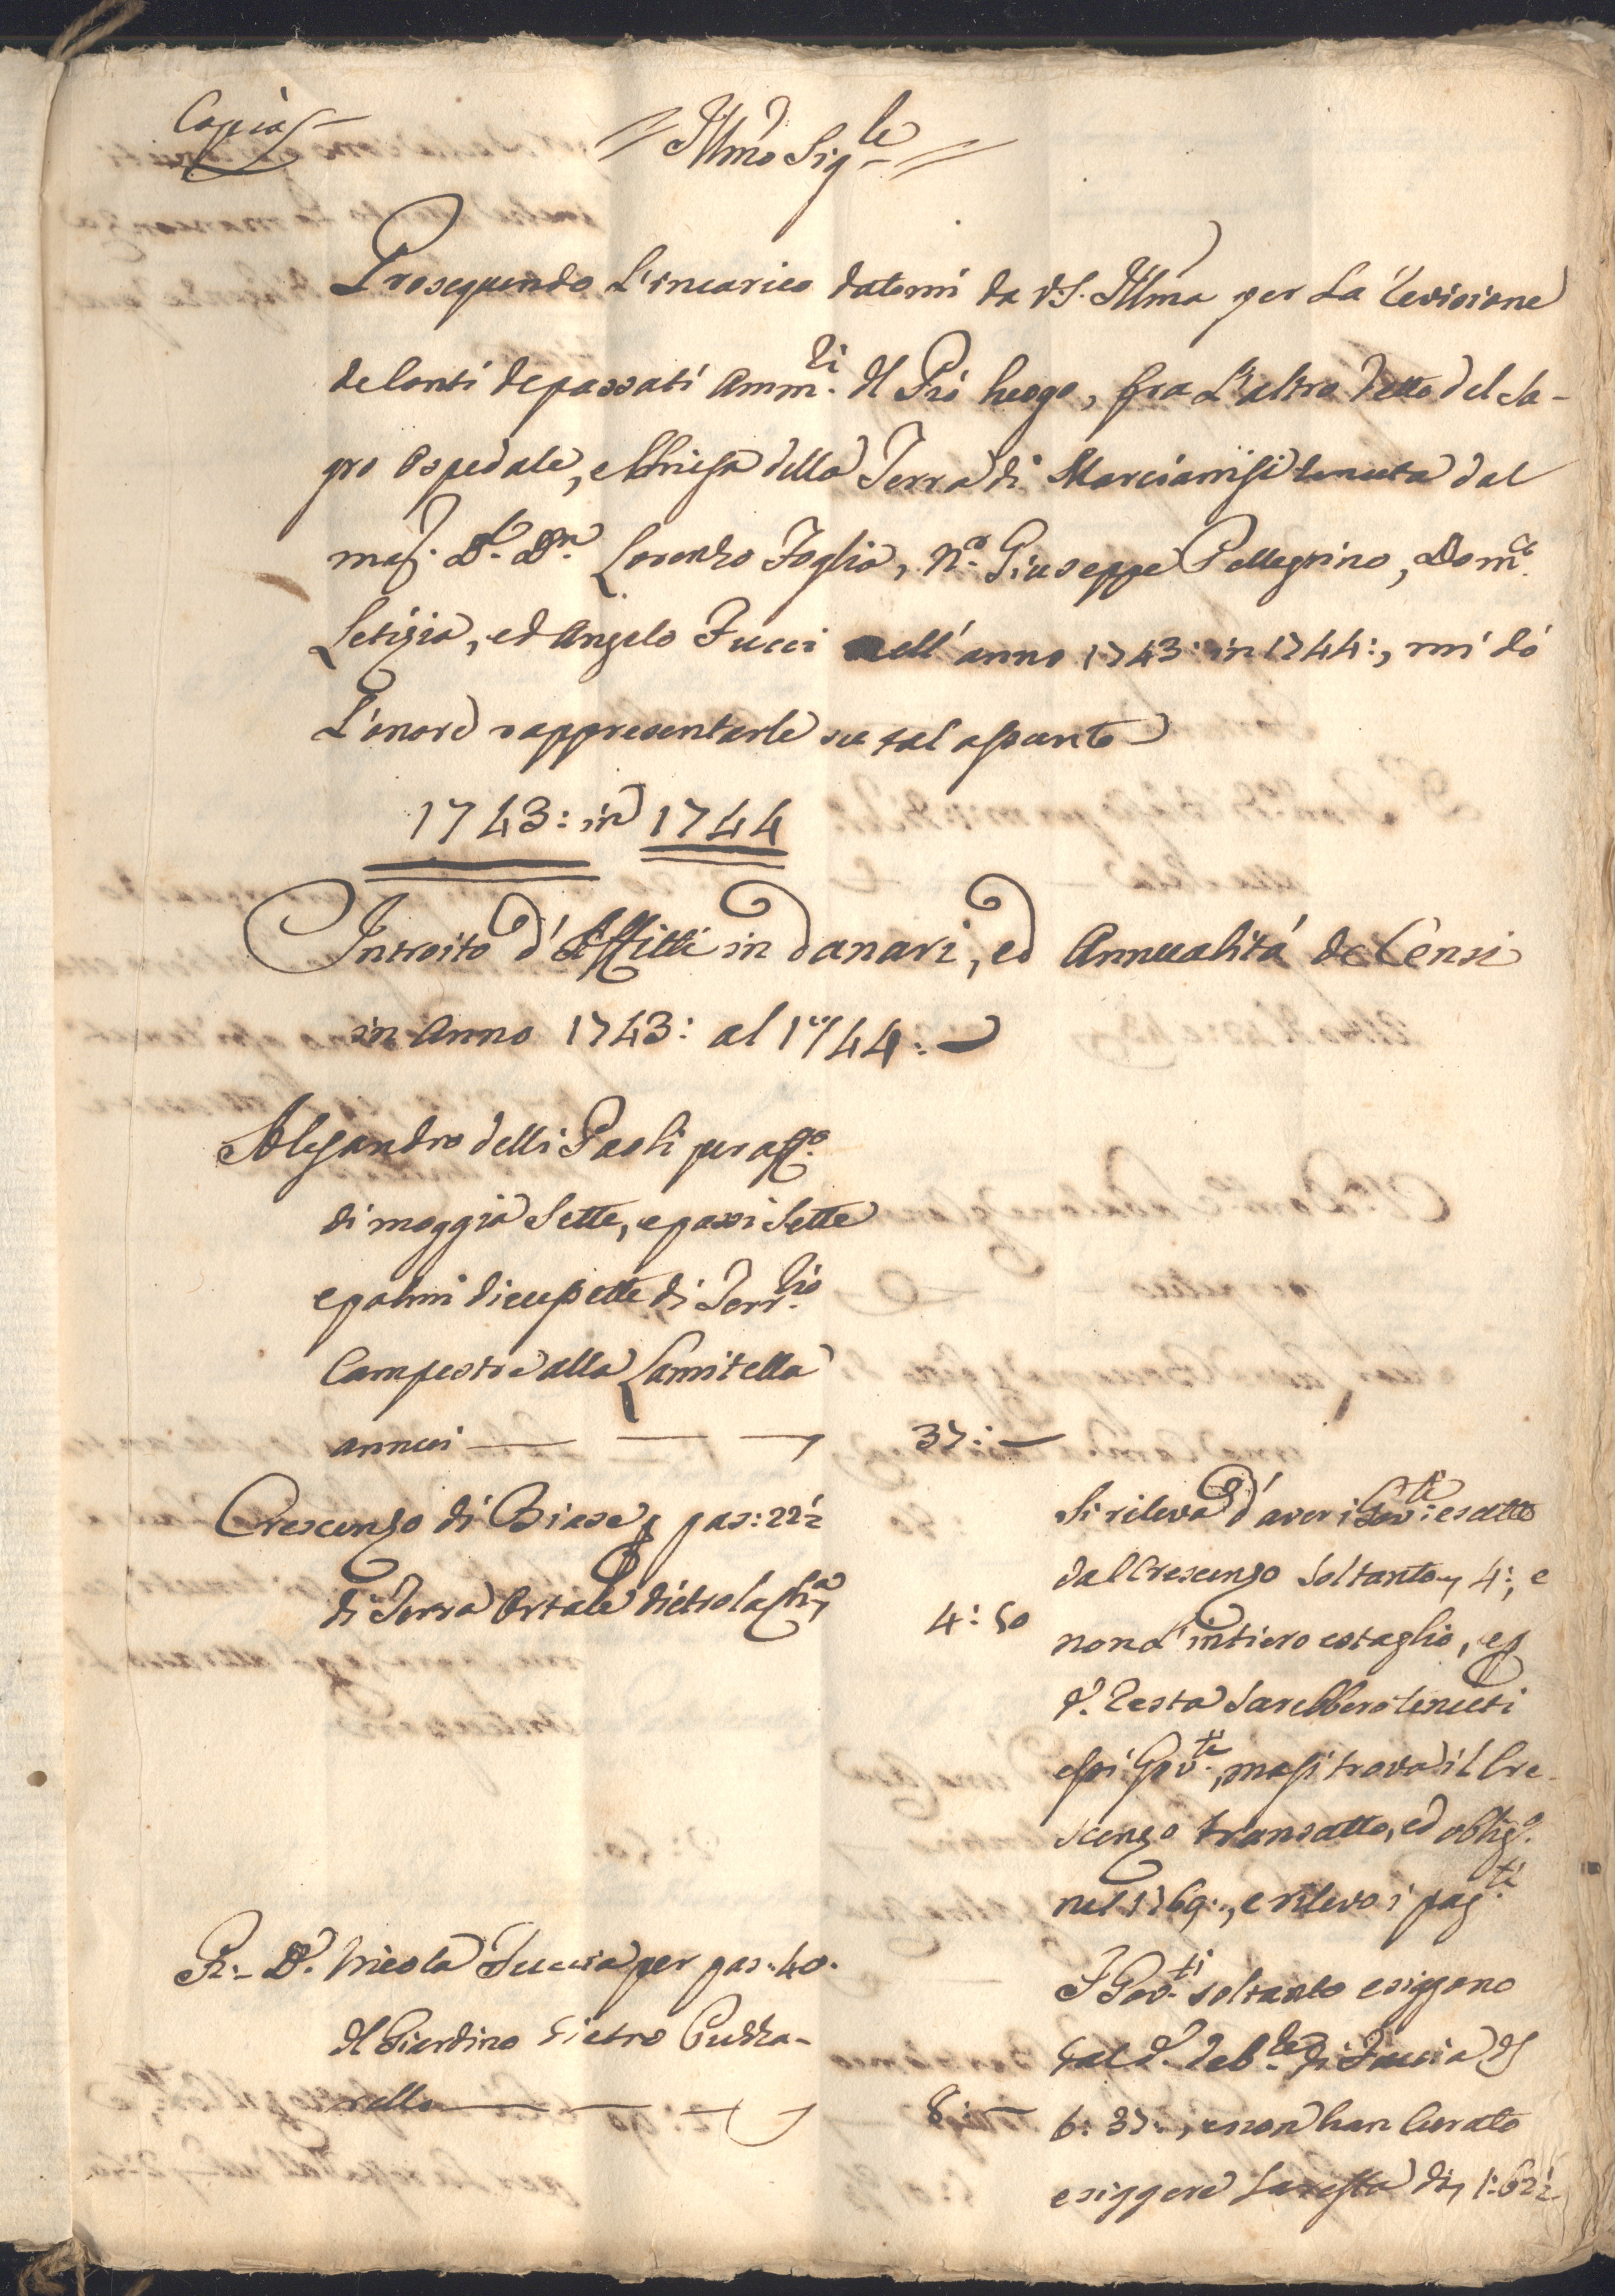 Copia
Ill̃mo Sig.le
Proseguendo L'incarico datomi da VS. Ill̃ma per La revisione
de Conti de passati Amm.ri del Pio luogo, fra L'altro detto del Sa-
gro Ospedale, e Chiesa della Terra di Marcianisi tenuta dal
mag. D.r D.n Lorenzo Foglia, N.r Giuseppe Pellegrino, Dom.co
Letizia, ed Angelo Fucci nell'anno 1743: in 1744:, mi dò
L'onore rappresentarle su tal assunto
1743: in 1744
Introito d'Affitti in danari, ed Annualitá de Censi
in Anno 1743: al 1744:
Alesandro delli Paoli per aff.o
di moggia Sette, e passi Sette
e palmi diecesette di Terr.rio
Campestre alla Lamitella
annui 37:—
Crescenzo di Biase p pas: 22½
di Terra Ortale dietro la Ch.a 4:50
Si rileva d'aver i Gov.ti esatto
dal Crescenzo Soltanto 4:, e
non L'intiero estaglio, e p
d.a resta Sarebbero tenuti
essi Gov.ti, ma si trova il Cre-
scenzo transatto, ed oblig.o
nel 1769:, e rilevo i pag.ti
R.- D. Nicola Fuccia per pas: 40.
del Giardino dietro Cuzza-
rella 8:—
I Gov.ti soltanto esiggono
dal d.o Deb.re di Fuccia D
6: 37:, e non han Curato
esiggere La resta di 1:62½